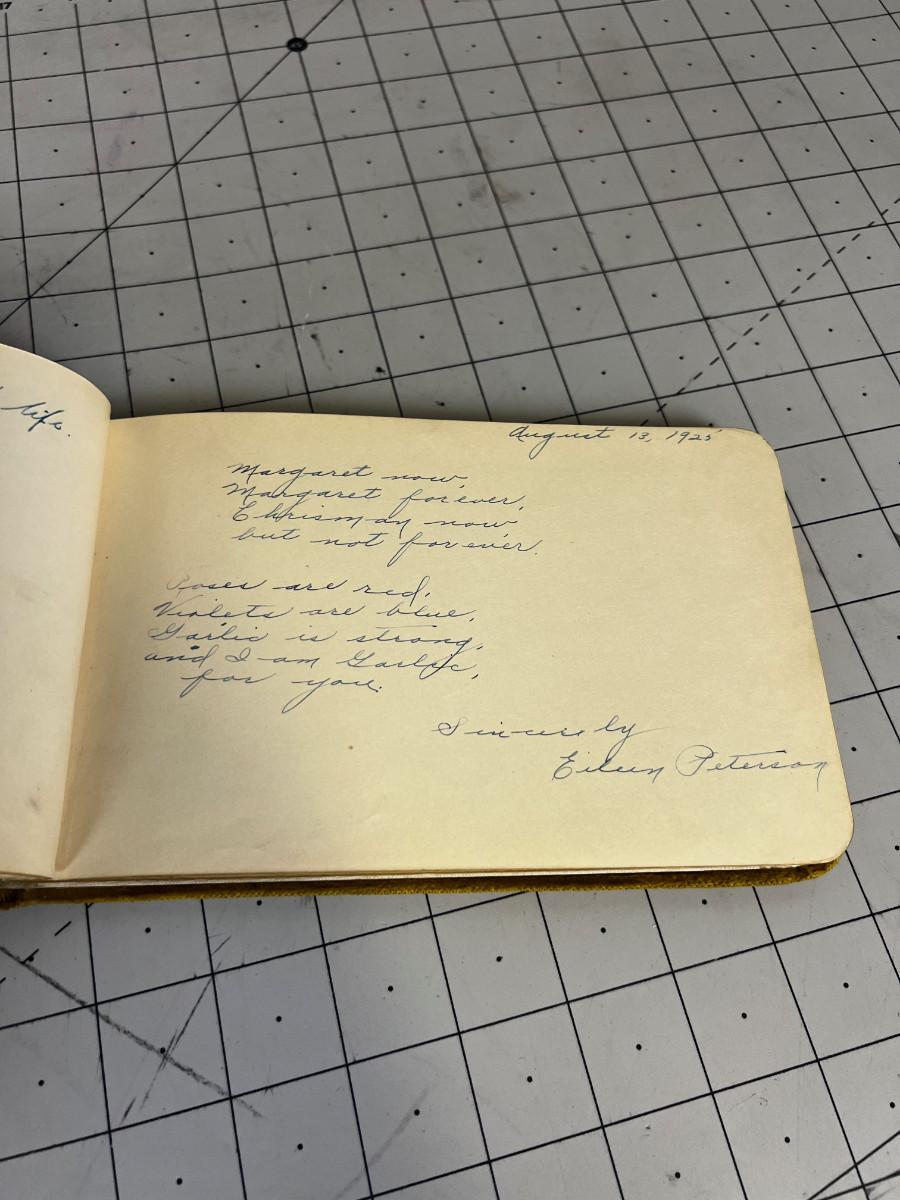 life.
August 13, 1925
Margaret now,
Margaret forever,
Chrisman now
but not forever.
Roses are red,
Violets are blue,
Garlic is strong,
and I am Garlic,
for you.
Sincerely
Eileen Peterson
17